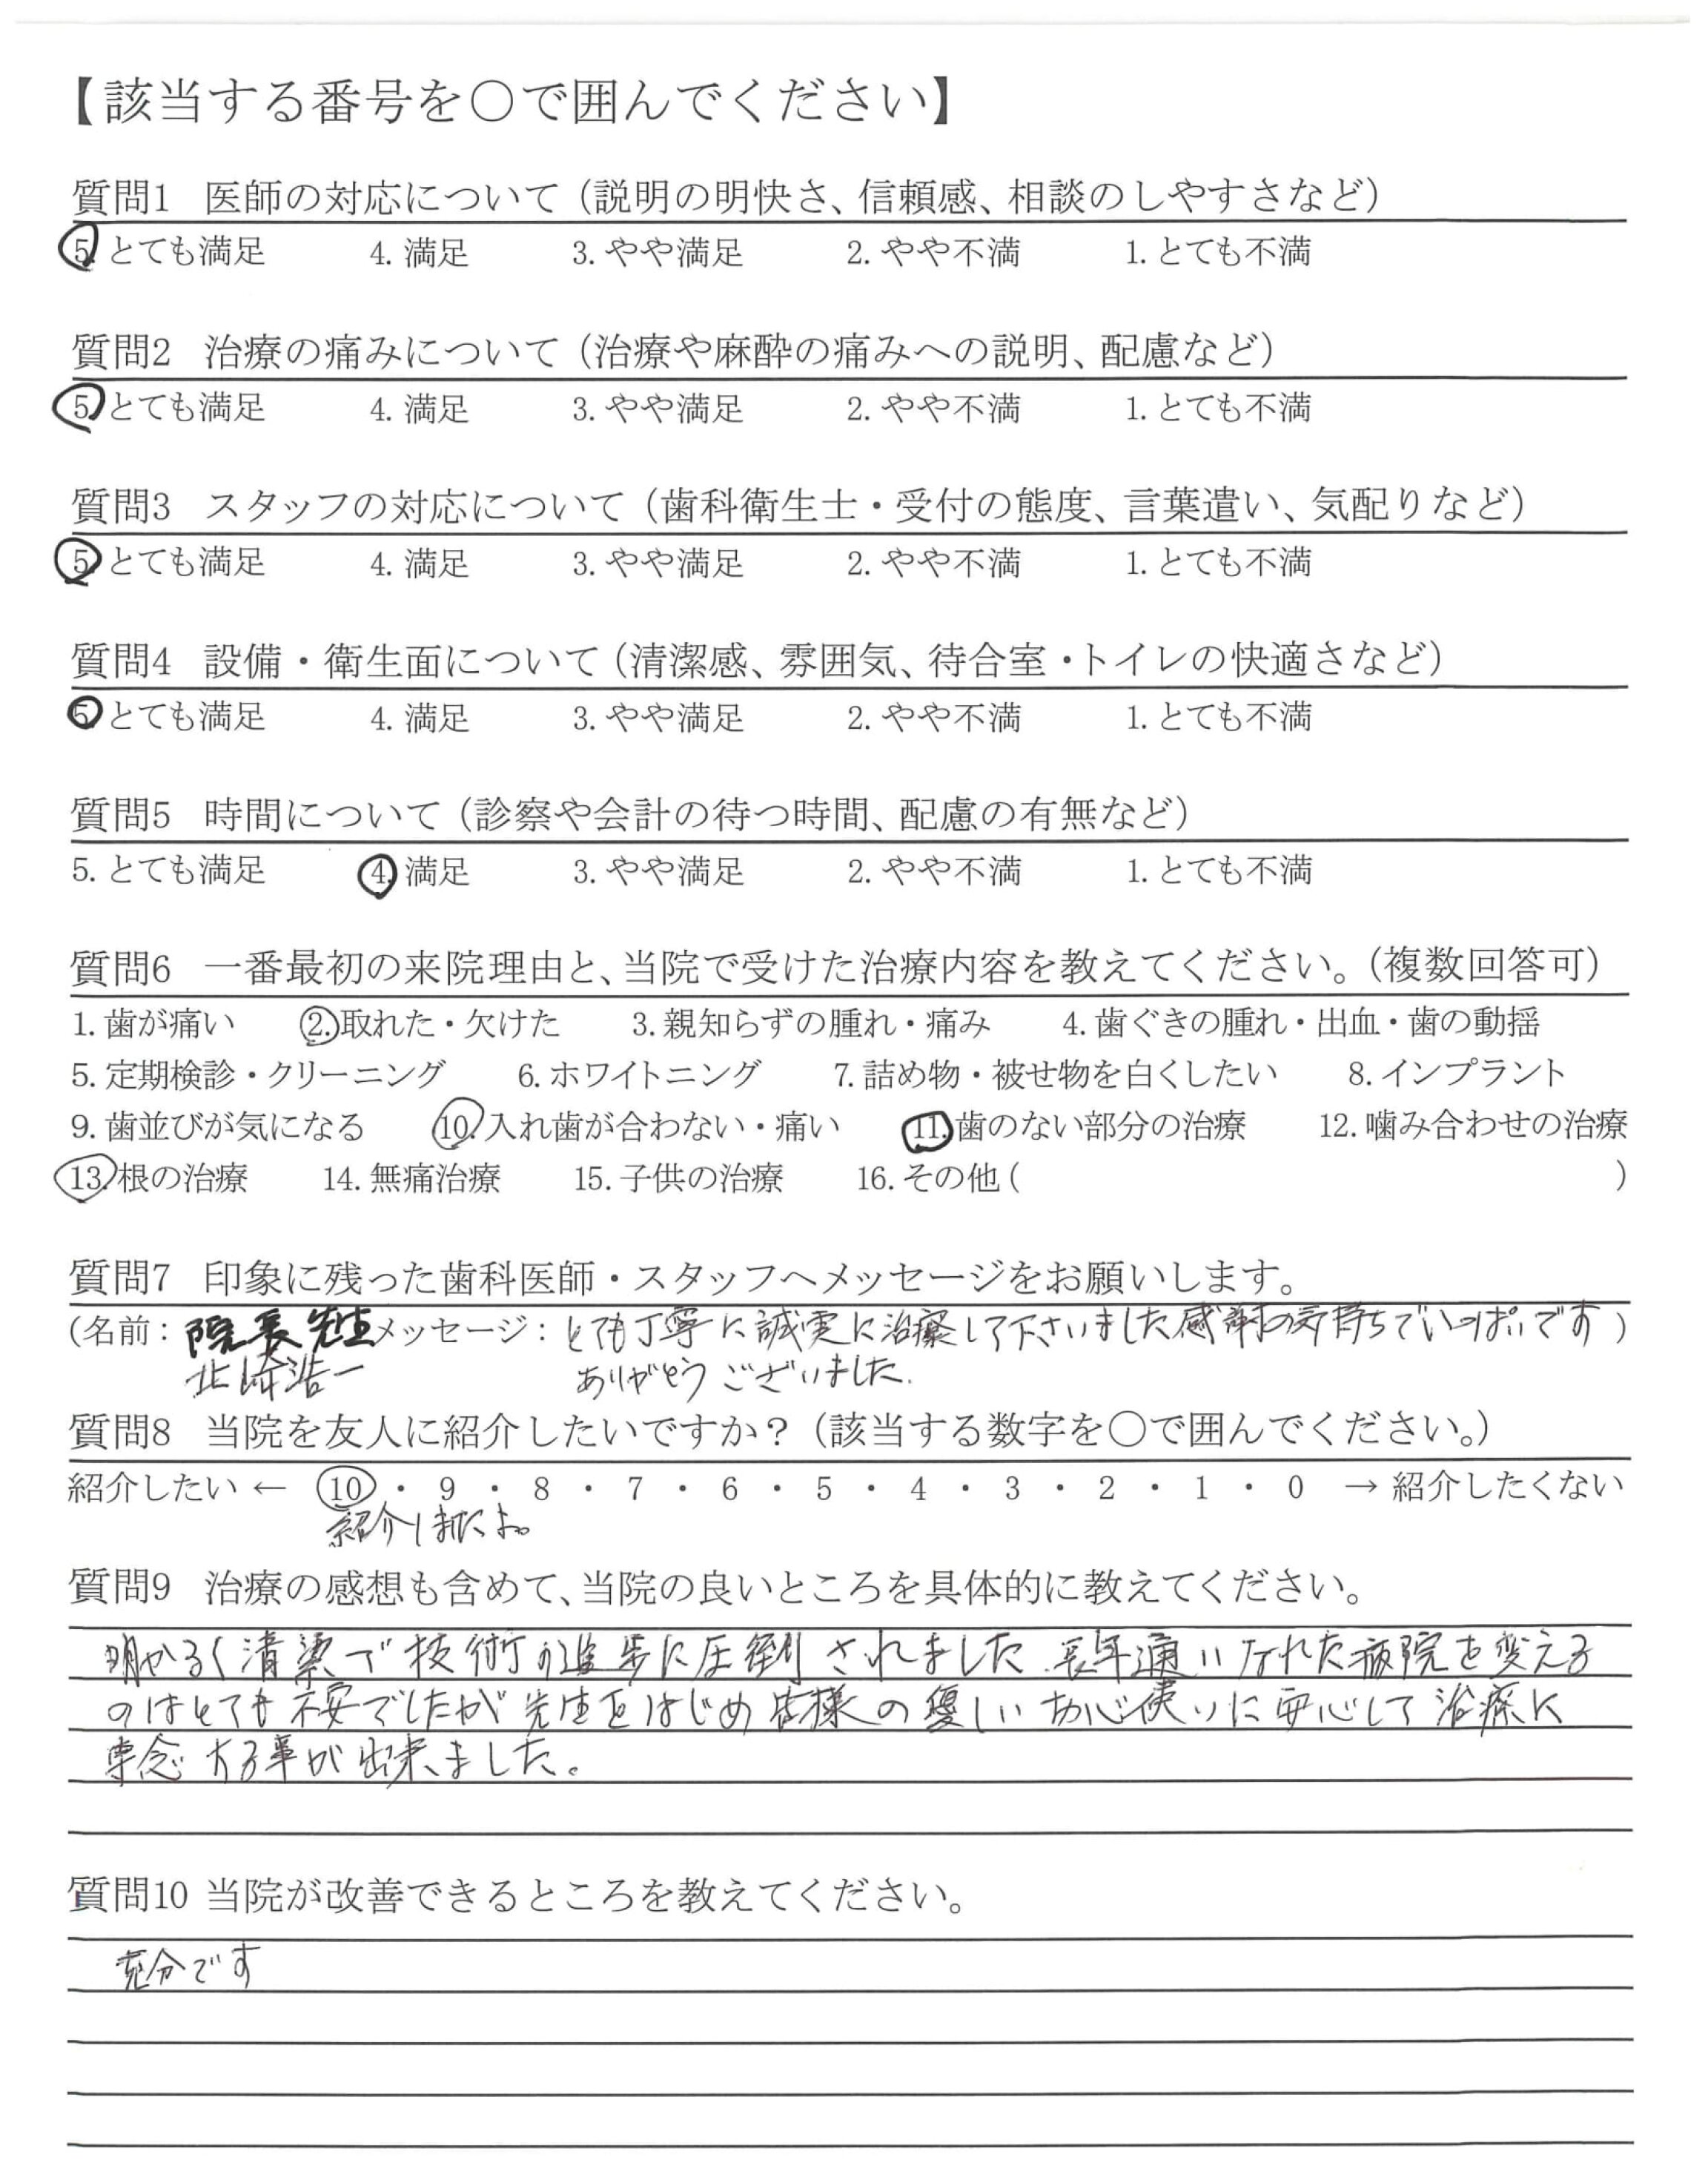 【該当する番号を〇で囲んでください】
質問1 医師の対応について（説明の明快さ、信頼感、相談のしやすさなど）
5. とても満足 4. 満足 3. やや満足 2. やや不満 1. とても不満
質問2 治療の痛みについて（治療や麻酔の痛みへの説明、配慮など）
5. とても満足 4. 満足 3. やや満足 2. やや不満 1. とても不満
質問3 スタッフの対応について（歯科衛生士・受付の態度、言葉遣い、気配りなど）
5. とても満足 4. 満足 3. やや満足 2. やや不満 1. とても不満
質問4 設備・衛生面について（清潔感、雰囲気、待合室・トイレの快適さなど）
5. とても満足 4. 満足 3. やや満足 2. やや不満 1. とても不満
質問5 時間について（診察や会計の待つ時間、配慮の有無など）
5. とても満足 4. 満足 3. やや満足 2. やや不満 1. とても不満
質問6 一番最初の来院理由と、当院で受けた治療内容を教えてください。（複数回答可）
1. 歯が痛い 2. 取れた・欠けた 3. 親知らずの腫れ・痛み 4. 歯ぐきの腫れ・出血・歯の動揺
5. 定期検診・クリーニング 6. ホワイトニング 7. 詰め物・被せ物を白くしたい 8. インプラント
9. 歯並びが気になる 10. 入れ歯が合わない・痛い 11. 歯のない部分の治療 12. 噛み合わせの治療
13. 根の治療 14. 無痛治療 15. 子供の治療 16. その他（ ）
質問7 印象に残った歯科医師・スタッフへメッセージをお願いします。
（名前：院長先生 メッセージ：とても丁寧に誠実に治療して下さいました感謝の気持ちでいっぱいです）
北﨑浩一 ありがとうございました.
質問8 当院を友人に紹介したいですか？（該当する数字を〇で囲んでください。）
紹介したい ← 10 ・ 9 ・ 8 ・ 7 ・ 6 ・ 5 ・ 4 ・ 3 ・ 2 ・ 1 ・ 0 → 紹介したくない
紹介しましたよ。
質問9 治療の感想も含めて、当院の良いところを具体的に教えてください。
明かるく清潔で技術の進歩に圧倒されました.長年通いなれた病院を変える
のはとても不安でしたが先生をはじめ皆様の優しいお心使いに安心して治療に
専念する事が出来ました。
質問10 当院が改善できるところを教えてください。
充分です